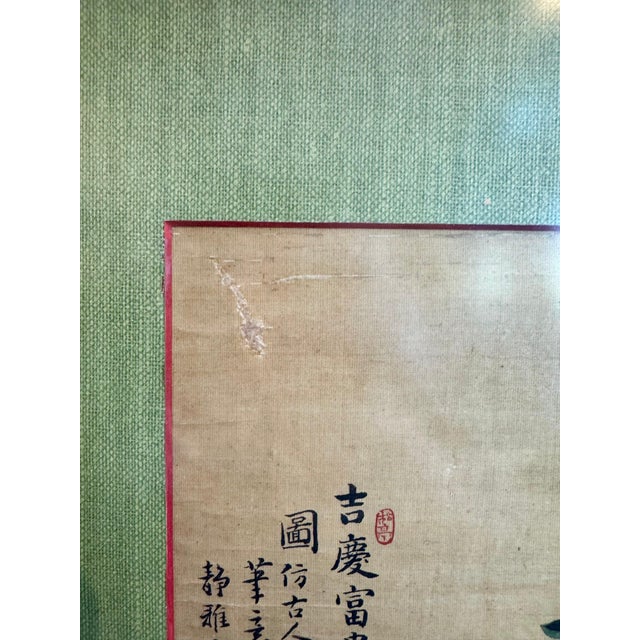 吉慶富
圖仿古人
筆意
靜雅